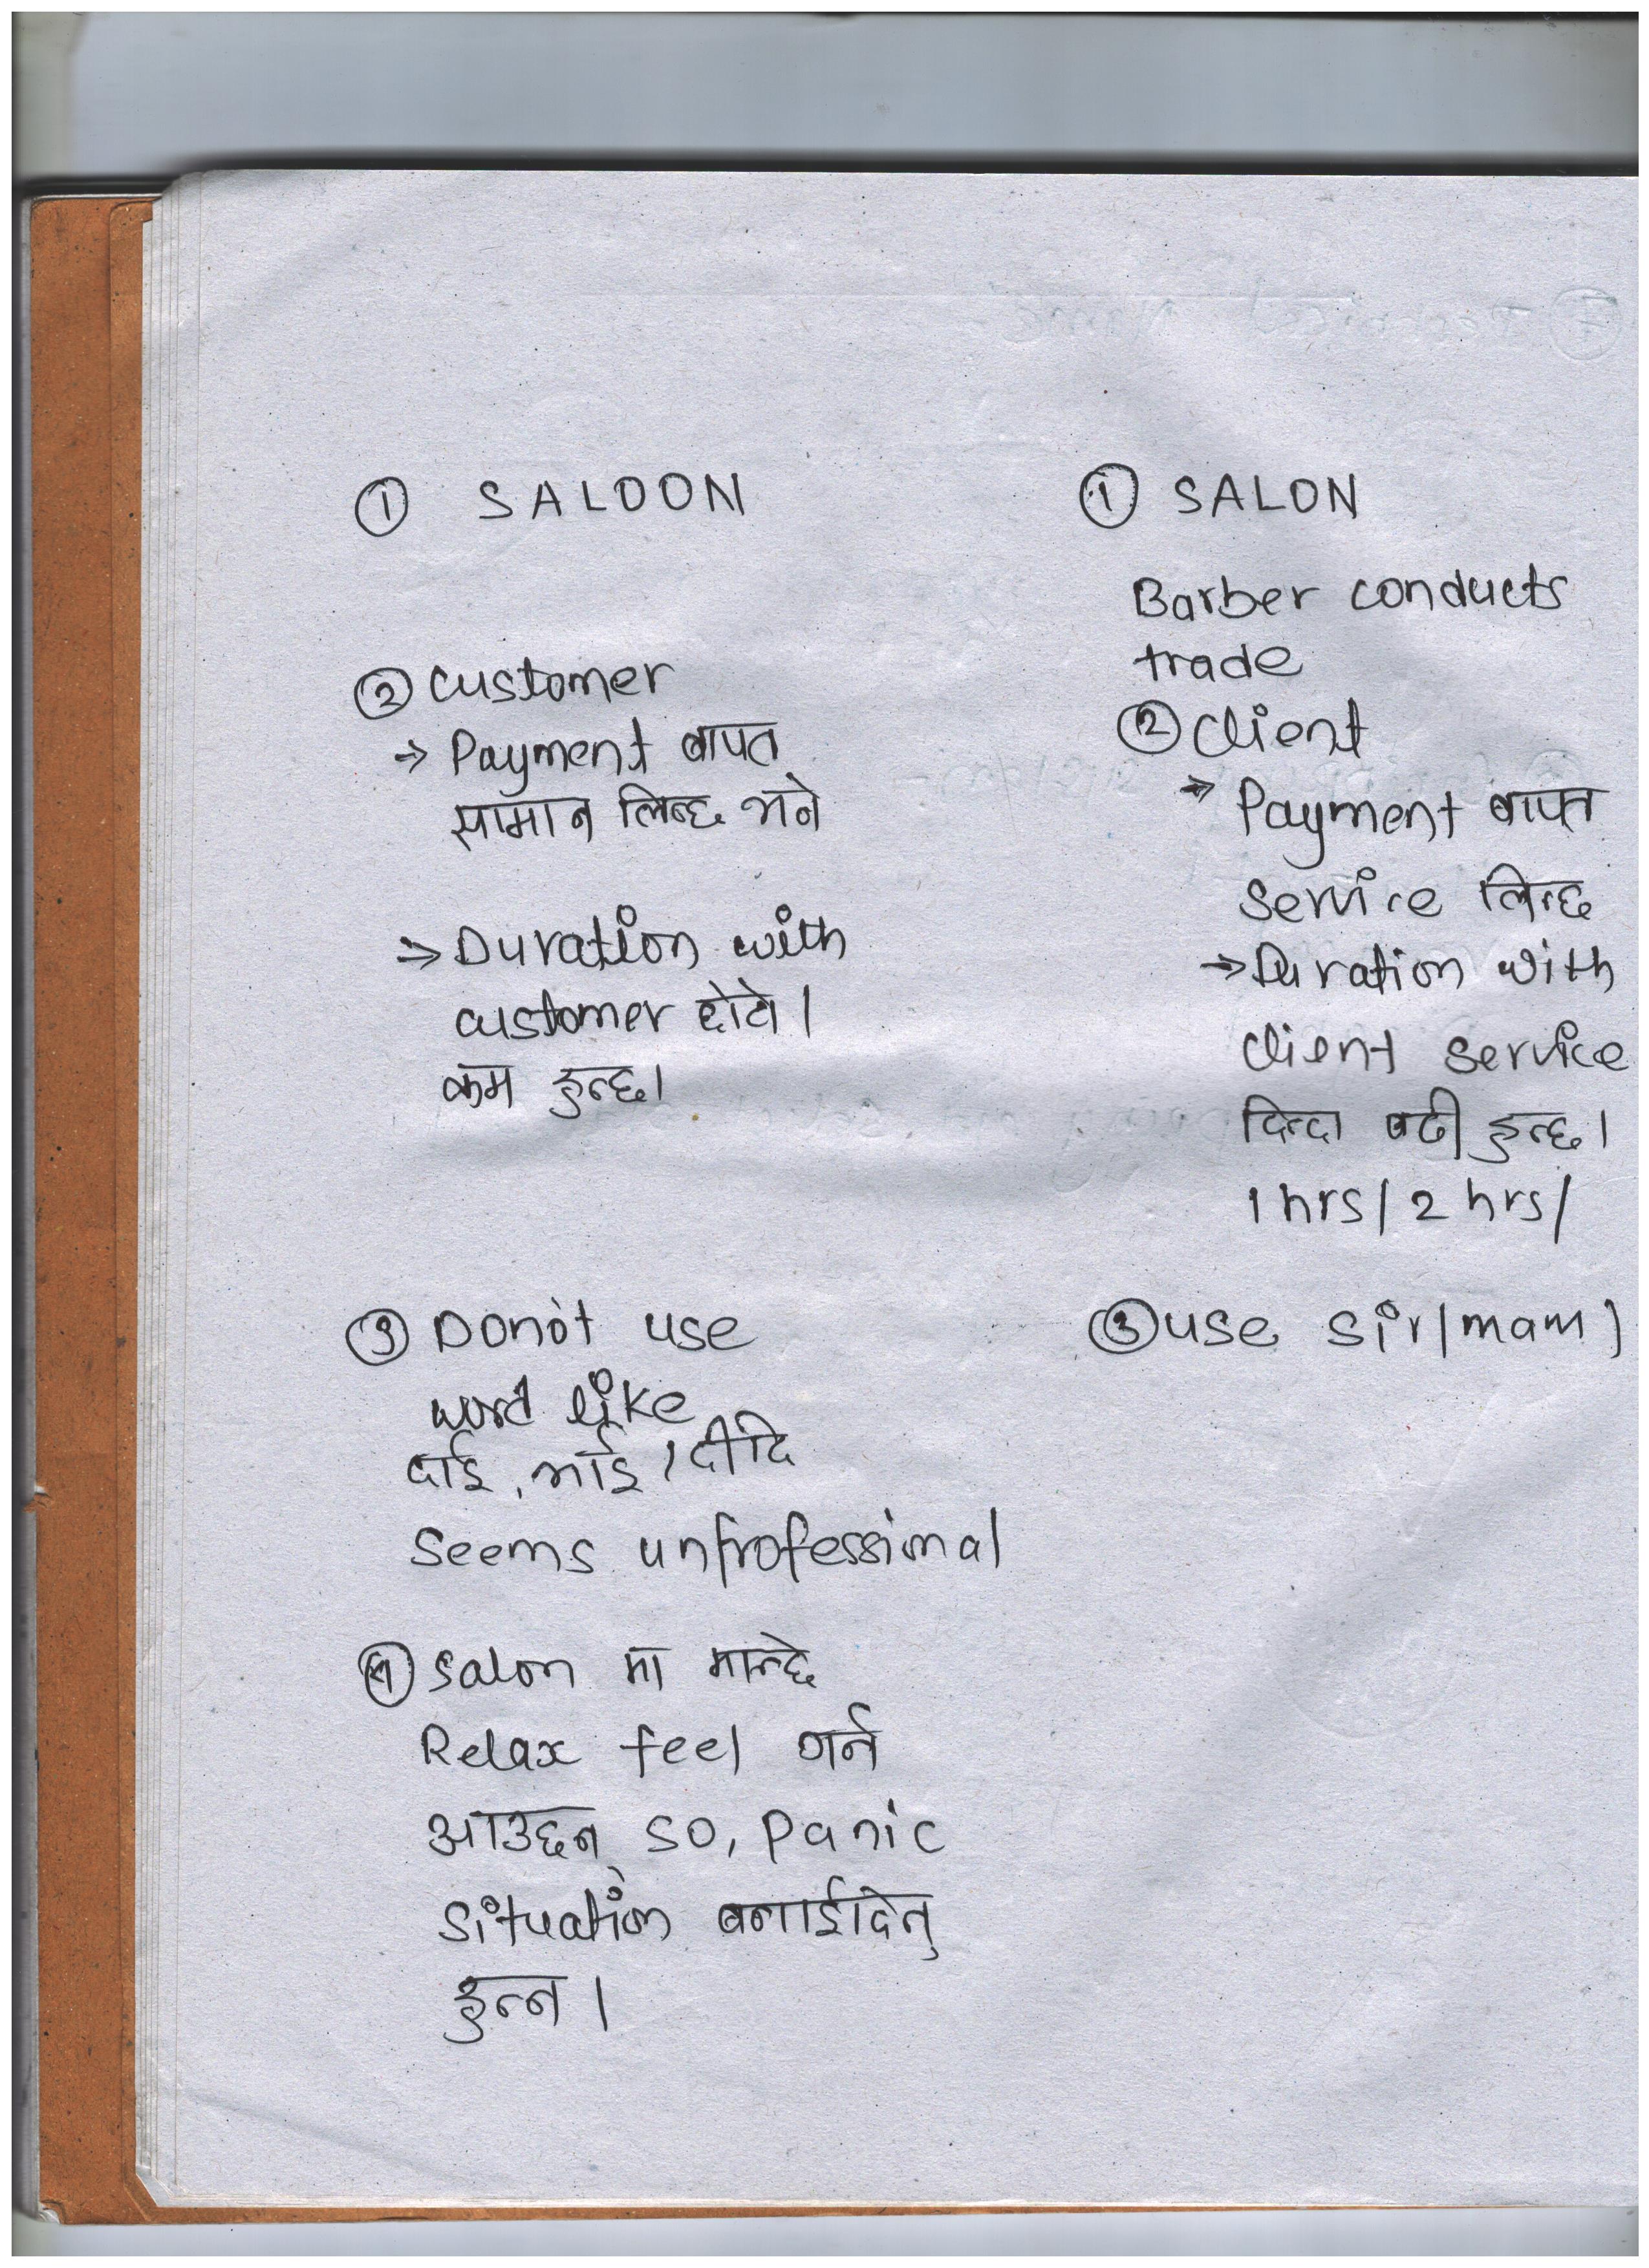 ① SALOON
② customer
→ Payment बापत
सामान लिन्छ भने
⇒ Duration with
customer छोटो।
कम हुन्छ।
③ Donot use
word like
दाई, भाई / दीदि
Seems unprofessional
④ salon मा मान्छे
Relax feel गर्न
आउछन् so, panic
situation बनाईदिनु
हुन्न।
① SALON
Barber conducts
trade
② client
→ Payment बापत
service लिन्छ
→ Duration with
client service
दिन्दा बढी हुन्छ।
1 hrs / 2 hrs /
③ use sir / mam )